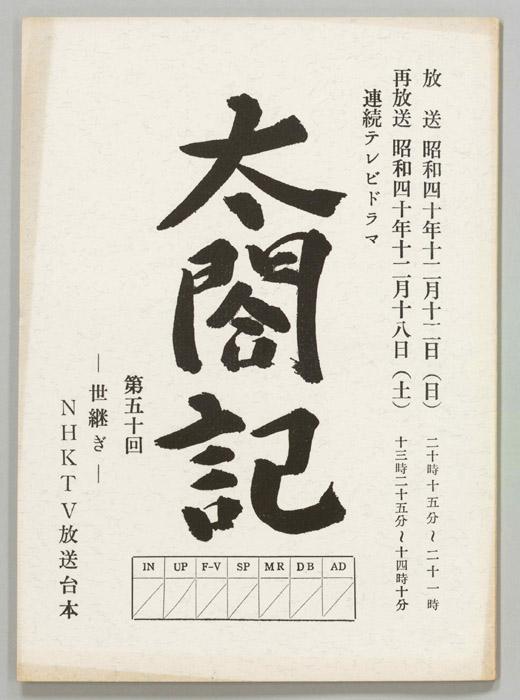 放　送 昭和四十年十二月十二日（日） 二十時十五分～二十一時
再放送 昭和四十年十二月十八日（土） 十三時二十五分～十四時十分
連続テレビドラマ
太閤記
第五十回
―世継ぎ―
NHKTV放送台本
IN UP F-V SP MR DB AD